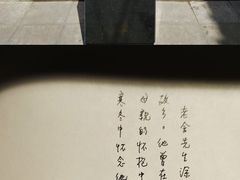 老舍先生深
故乡。他曾在
母亲的怀抱中
寒冬中怀念他